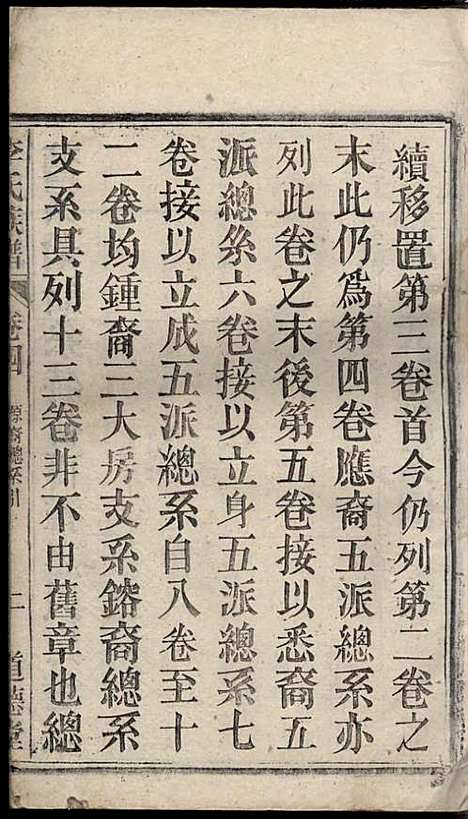 續移置第三卷首今仍列第二卷之
末此仍爲第四卷應裔五派總系亦
列此卷之末後第五卷接以悉裔五
派總系六卷接以立身五派總系七
卷接以立成五派總系自八卷至十
二卷均鍾裔三大房支系鎔裔總系
支系具列十三卷非不由舊章也總
李氏族譜 卷四 總系引 二 道德堂